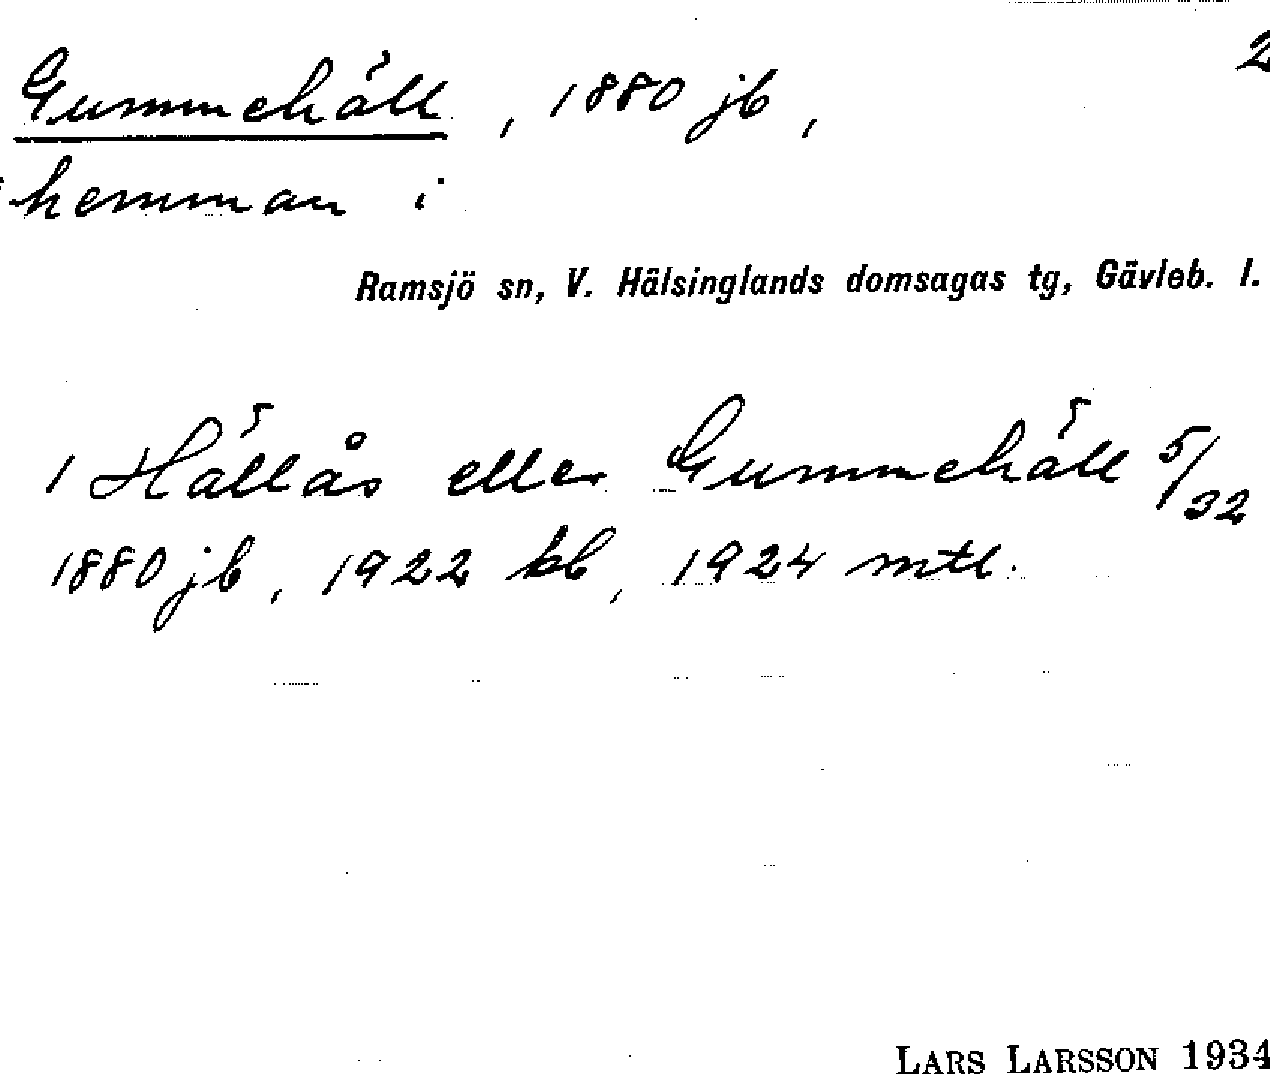 2
Gummehäll, 1880 jb,
hemman i
Ramsjö sn, V. Hälsinglands domsagas tg, Gävleb. l.
1 Hällås eller Gummehäll 5/32
1880 jb, 1922 kb, 1924 mtl.
LARS LARSSON 1934